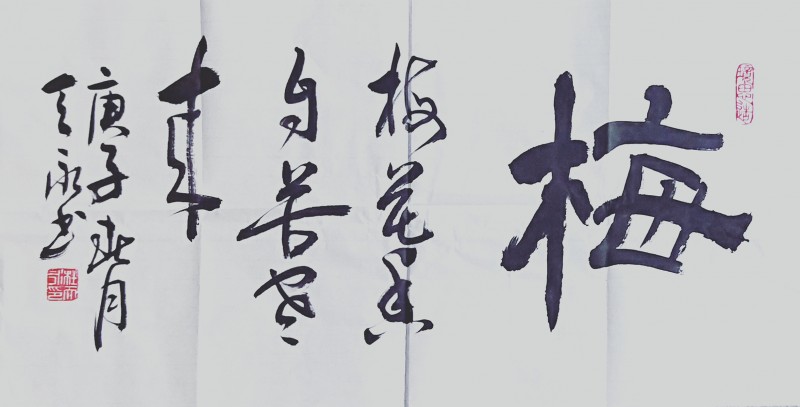 梅
梅花香
自苦寒
来
庚子春月
天永书